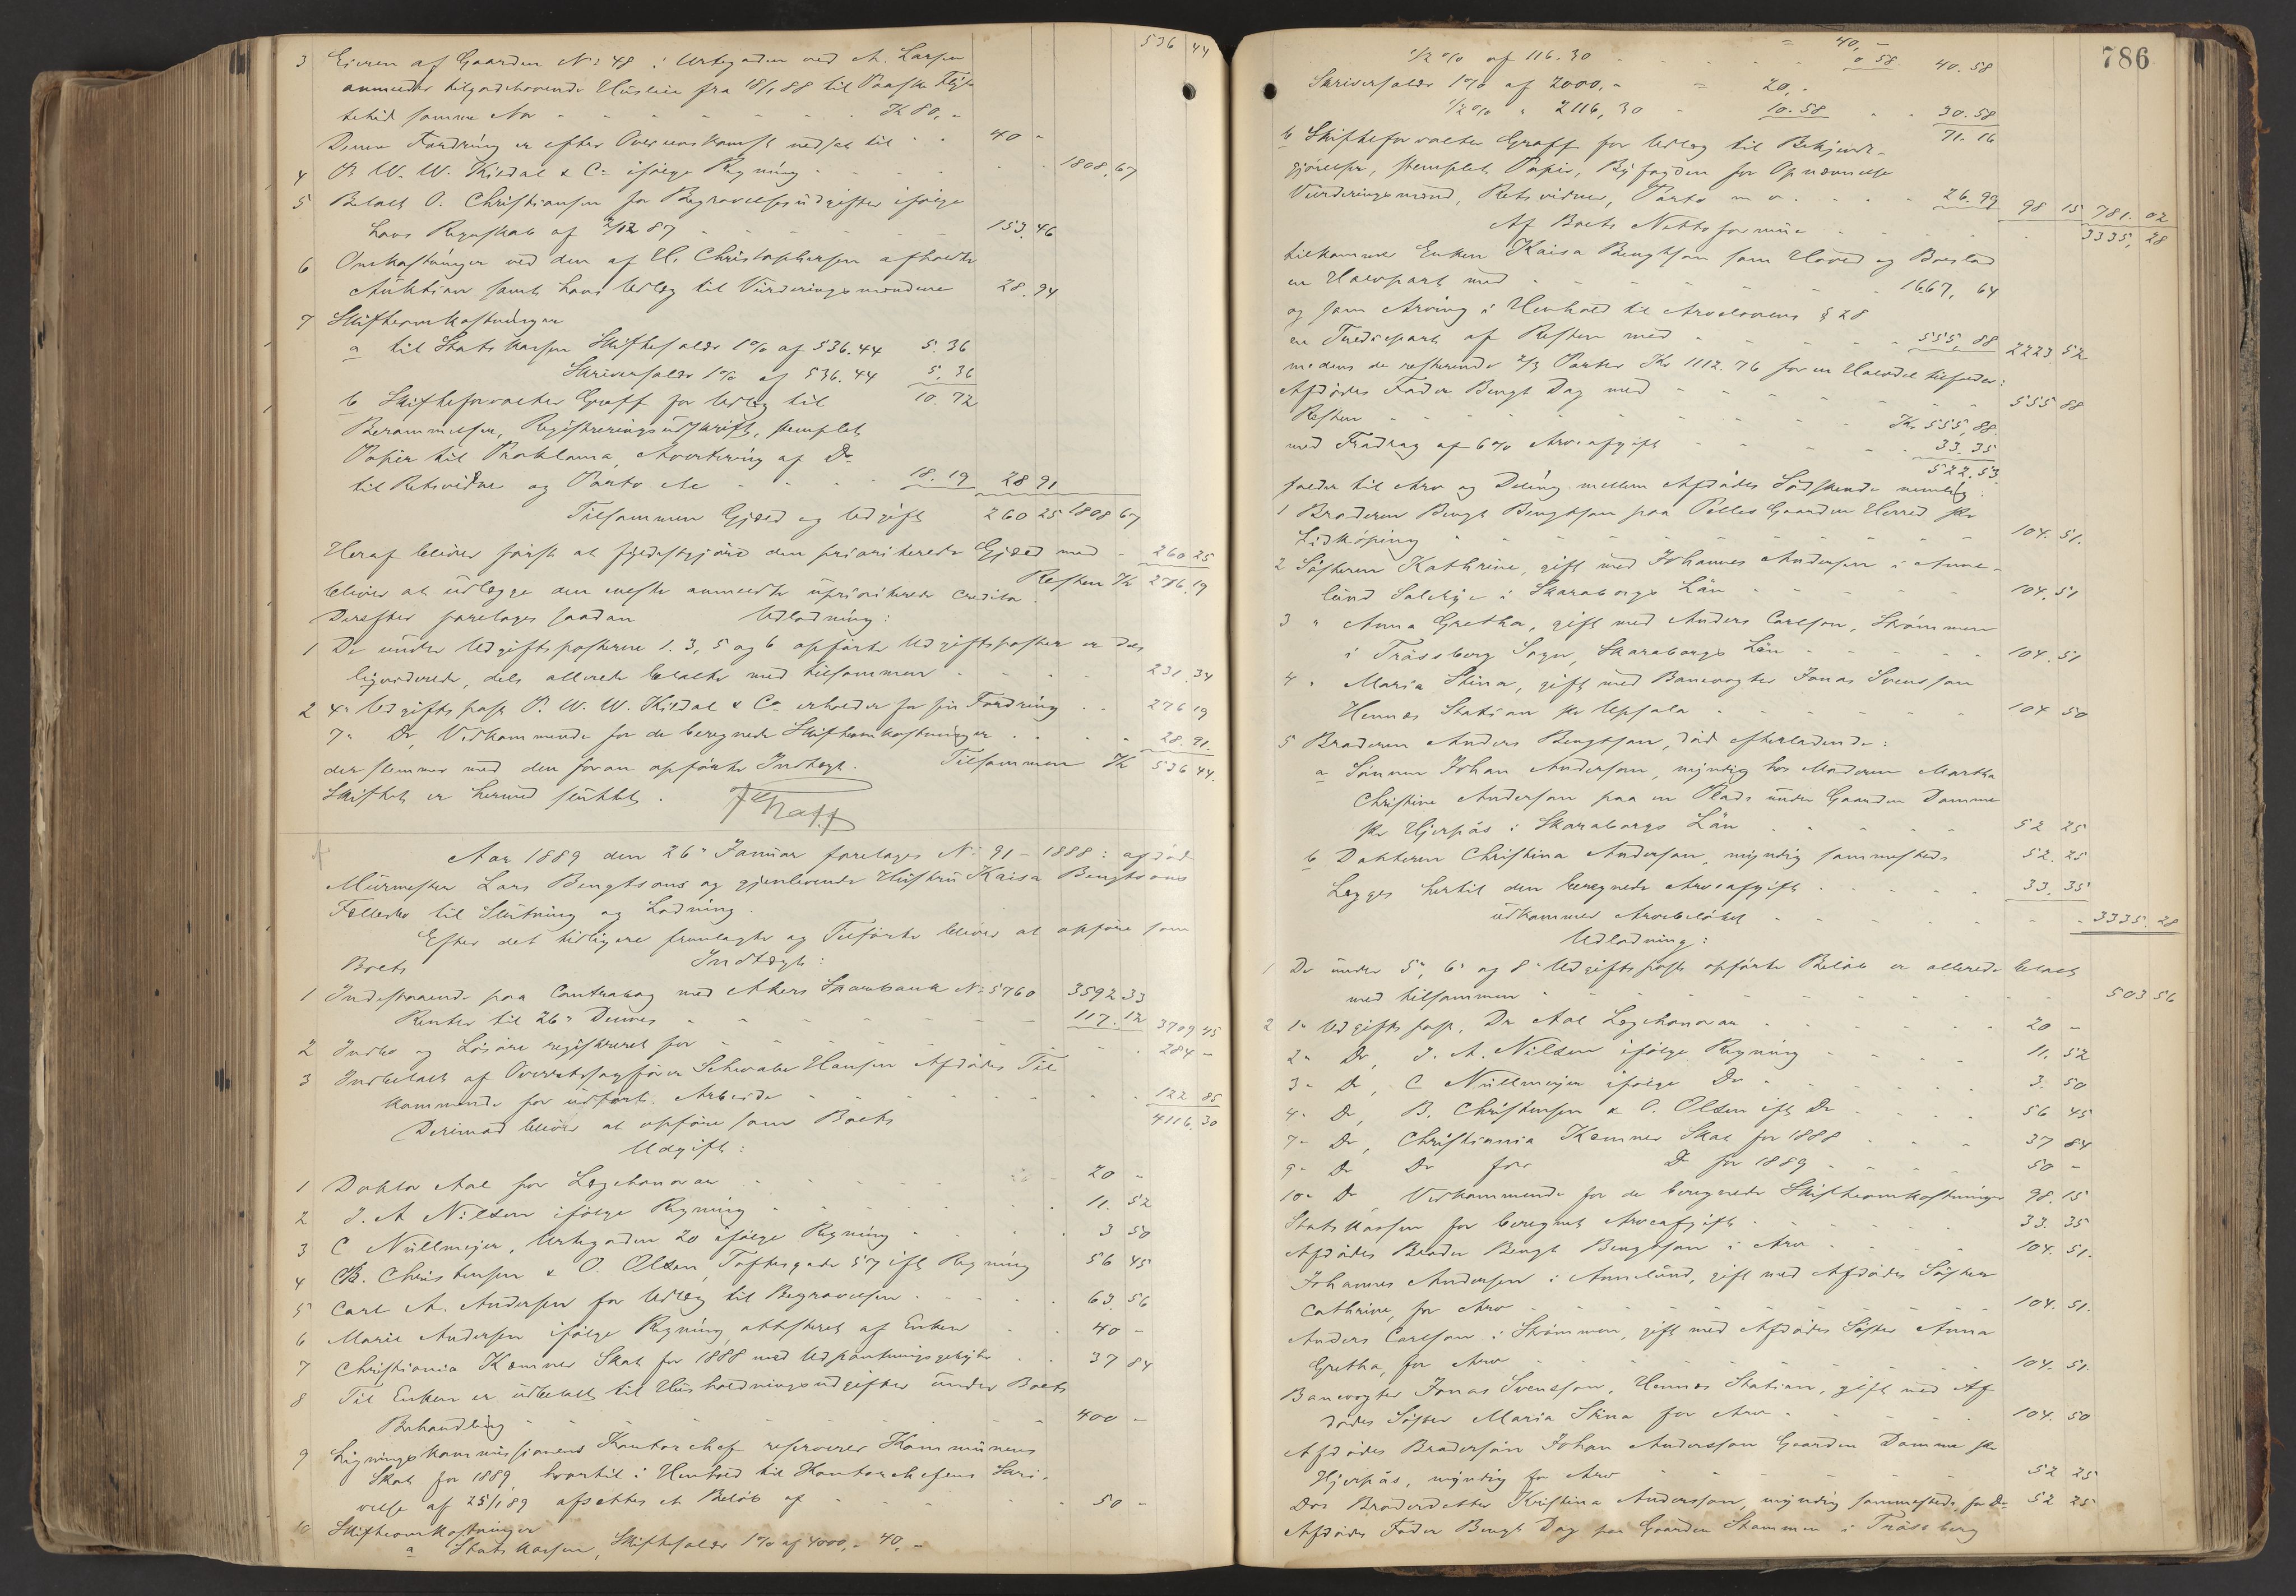 536 44
3 Eieren af Gaarden No 48 i Urtegaden ved A. Larsen
anmelder tilgodehavende Husleie fra 18/1 88 til Paaske Flyt-
tetid samme Aar - - - Kr 80,-
Denne Fordring er efter Overenskomst nedsat til - - 40 -
4 P. W. W. Kildal & Co ifølge Regning - - - 1808,67
5 Betalt O. Christiansen for Begravelsesudgifter ifølge
hans Regnskab af 2/12 87 - - - 153,46
6 Omkostninger ved den af H. Christophersen afholdte
Auktion samt hans Udlæg til Vurderingsmændene 28.94
7 Skifteomkostninger
a til Statskassen Skiftesalær 1% af 536.44 5.36
Skriversalær 1% af 536.44 5.36
10.72
b Skifteforvalter Graff for Udlæg til
Berammelsen, Registreringsudskrift, stemplet
Papir til Proklama, Avertering af Do
til Retsvidne og Porto etc - - - 18.19 28 91
Tilsammen Gjæld og Udgift 260 25 1808 67
Heraf bliver først at fyldestgjøre den prioriterede Gjæld med - 260 25
Resten Kr 276.19
bliver at udlægge den eneste anmeldte uprioriterede Creditor.
Derefter foretages saadan Udlodning:
1 De under Udgiftsposterne 1. 3, 5 og 6 opførte Udgiftsposter er dels
ligviderede, dels allerede betalte med tilsammen - - - 231.34
2 4de Udgiftspost P. W. W. Kildal & Co erholder for sin Fordring - - 276 19
7de Do, Vedkommende for de beregnede Skifteomkostninger - - - 28.91.
Tilsammen Kr 536 44.
der stemmer med den foran opførte Indtægt.
Skiftet er hermed sluttet.
Graff
Aar 1889 den 26de Januar foretages No 91 - 1888: afdøde
Murmester Lars Bengtsons og gjenlevende Hustru Kaisa Bengtsons
Fællesbo til Slutning og Lodning.
Efter det tidligere fremlagte og Tilførte bliver at opføre som
Boets Indtægt:
1 Indestaaende paa Contrabog med Akers Sparebank No 5760 3592 33
Renter til 26de Dennes - - - 117.12 3709 45
2 Indbo og Løsøre registreret for - - - 284 -
3 Indbetalt af Overretssagfører Schwabe Hansen Afdødes Til
kommende for udført Arbeide - - - 122 85
4116.30
Derimod bliver at opføre som Boets
Udgift:
1 Doktor Aal for Lægehonorar - - - 20 -
2 J. A Nilsen ifølge Regning - - - 11.52
3 C Nüllmeyer, Urtegaden 20 ifølge Regning - - - 3 50
4 B. Christensen & O. Olsen Toftesgade 57 ifl Regning 56 45
5 Carl A. Andersen for Udlæg til Begravelsen - - - 63.56
6 Marie Andersen ifølge Regning attesteret af Enken - - 40 -
7 Christiania Kæmner Skat for 1888 med Udpantningsgebyhr - - 37 84
8 Til Enken er udbetalt til Husholdningsudgifter under Boets
Behandling - - - 400 -
9 Ligningskommissionens Kontorchef reserverer Kommunens
Skat for 1889, hvortil i Henhold til Kontorchefens Skri-
velse af 25/1 89 afsættes et Beløb af - - - 50 -
10 Skifteomkostninger
a Statskassen, Skiftesalær 1% af 4000,- 40,-
786
= 40,-
1/2% af 116.30 - - - 0 58 40.58
Skriversalær 1% af 2000,- = 20,-
1/2% " 2116,30 - 10.58 - - 30.58
71.16
b Skifteforvalter Graff for Udlæg til Bekjendt-
gjørelser, stemplet Papir, Byfogden for Opnævnelse
Vurderingsmænd, Retsvidner, Porto m v. - - - 26.99 98 15 781.02
Af Boets Nettoformue - - - 3335,28
tilkommer Enken Kaisa Bengtson som Hoved og Boeslod
en Halvpart med - - - 1667,64
og som Arving i Henhold til Arvelovens § 28
en Trediepart af Resten med - - - 555,88 2223 52
medens de resterende 2/3 Parter Kr 1112.76 for en Halvdel tilfalder:
Afdødes Fader Bengt Dag med - - - 555 88
Resten - - - Kr 555,88.
med Fradrag af 6% Arveafgift - - - 33.35
522.53
falder til Arv og Deling mellem Afdødes Sødskende nemlig:
1 Broderen Bengt Bengtson paa Pelles Gaarden Herred pr
Lidköping - - - 104.51.
2 Søsteren Kathrine, gift med Johannes Andersen i Anne-
lund Saleby i Skaraborgs Län - - - 104.51
3 " Anna Gretha, gift med Anders Carlson, Strömmen
i Trässberg Sogn, Skaraborgs Län - - - 104.51
4 " Maria Stina, gift med Banevogter Jonas Svensson
Hennes Station pr Upsala - - - 104 50
5 Broderen Anders Bengtson, død efterladende:
a Sønnen Johan Anderson, myndig hos Moderen Martha
Christine Anderson paa en Plads under Gaarden Damme
pr Hjerpås i Skaraborgs Län - - - 52 25
b Datteren Christina Anderson, myndig sammesteds 52.25
Lægges hertil den beregnede Arveafgift - - - 33.35
udkommer Arvebeløbet - - - 3335.28
Udlodning:
1 De under 5te, 6te og 8de Udgiftspost opførte Beløb er allerede betalt
med tilsammen - - - 503 56
2 1ste Udgiftspost, Dr Aal Lægehonorar - - - 20 -
2den Do, J. A. Nilsen ifølge Regning - - - 11.52
3de Do, C Nüllmeyer ifølge Do - - - 3.50
4de Do, B. Christensen & O. Olsen ifl Do - - - 56 45
7de Do, Christiania Kæmner Skat for 1888 - - - 37 84
9de Do Do for Do for 1889 - - - 50 -
10de Do, Vedkommende for de beregnede Skifteomkostninger 98.15
Statskassen for beregnet Arveafgift - - - 33.35
Afdødes Broder Bengt Bengtson i Arv - - - 104.51.
Johannes Andersen i Annelund, gift med Afdødes Søster
Cathrine, for Arv - - - 104.51.
Anders Carlson i Strömmen, gift med Afdødes Søster Anna
Gretha, for Arv - - - 104.51.
Banevogter Jonas Svensson, Hennes Station, gift med Af
dødes Søster Maria Stina for Arv - - - 104.50
Afdødes Brodersøn Johan Andersson Gaarden Damme pr
Hjerpås, myndig for Arv - - - 52 25
Dos Broderdatter Kristina Andersson, myndig sammesteds, for Do 52 25
Afdødes Fader Bengt Dag paa Gaarden Stommen i Trässberg